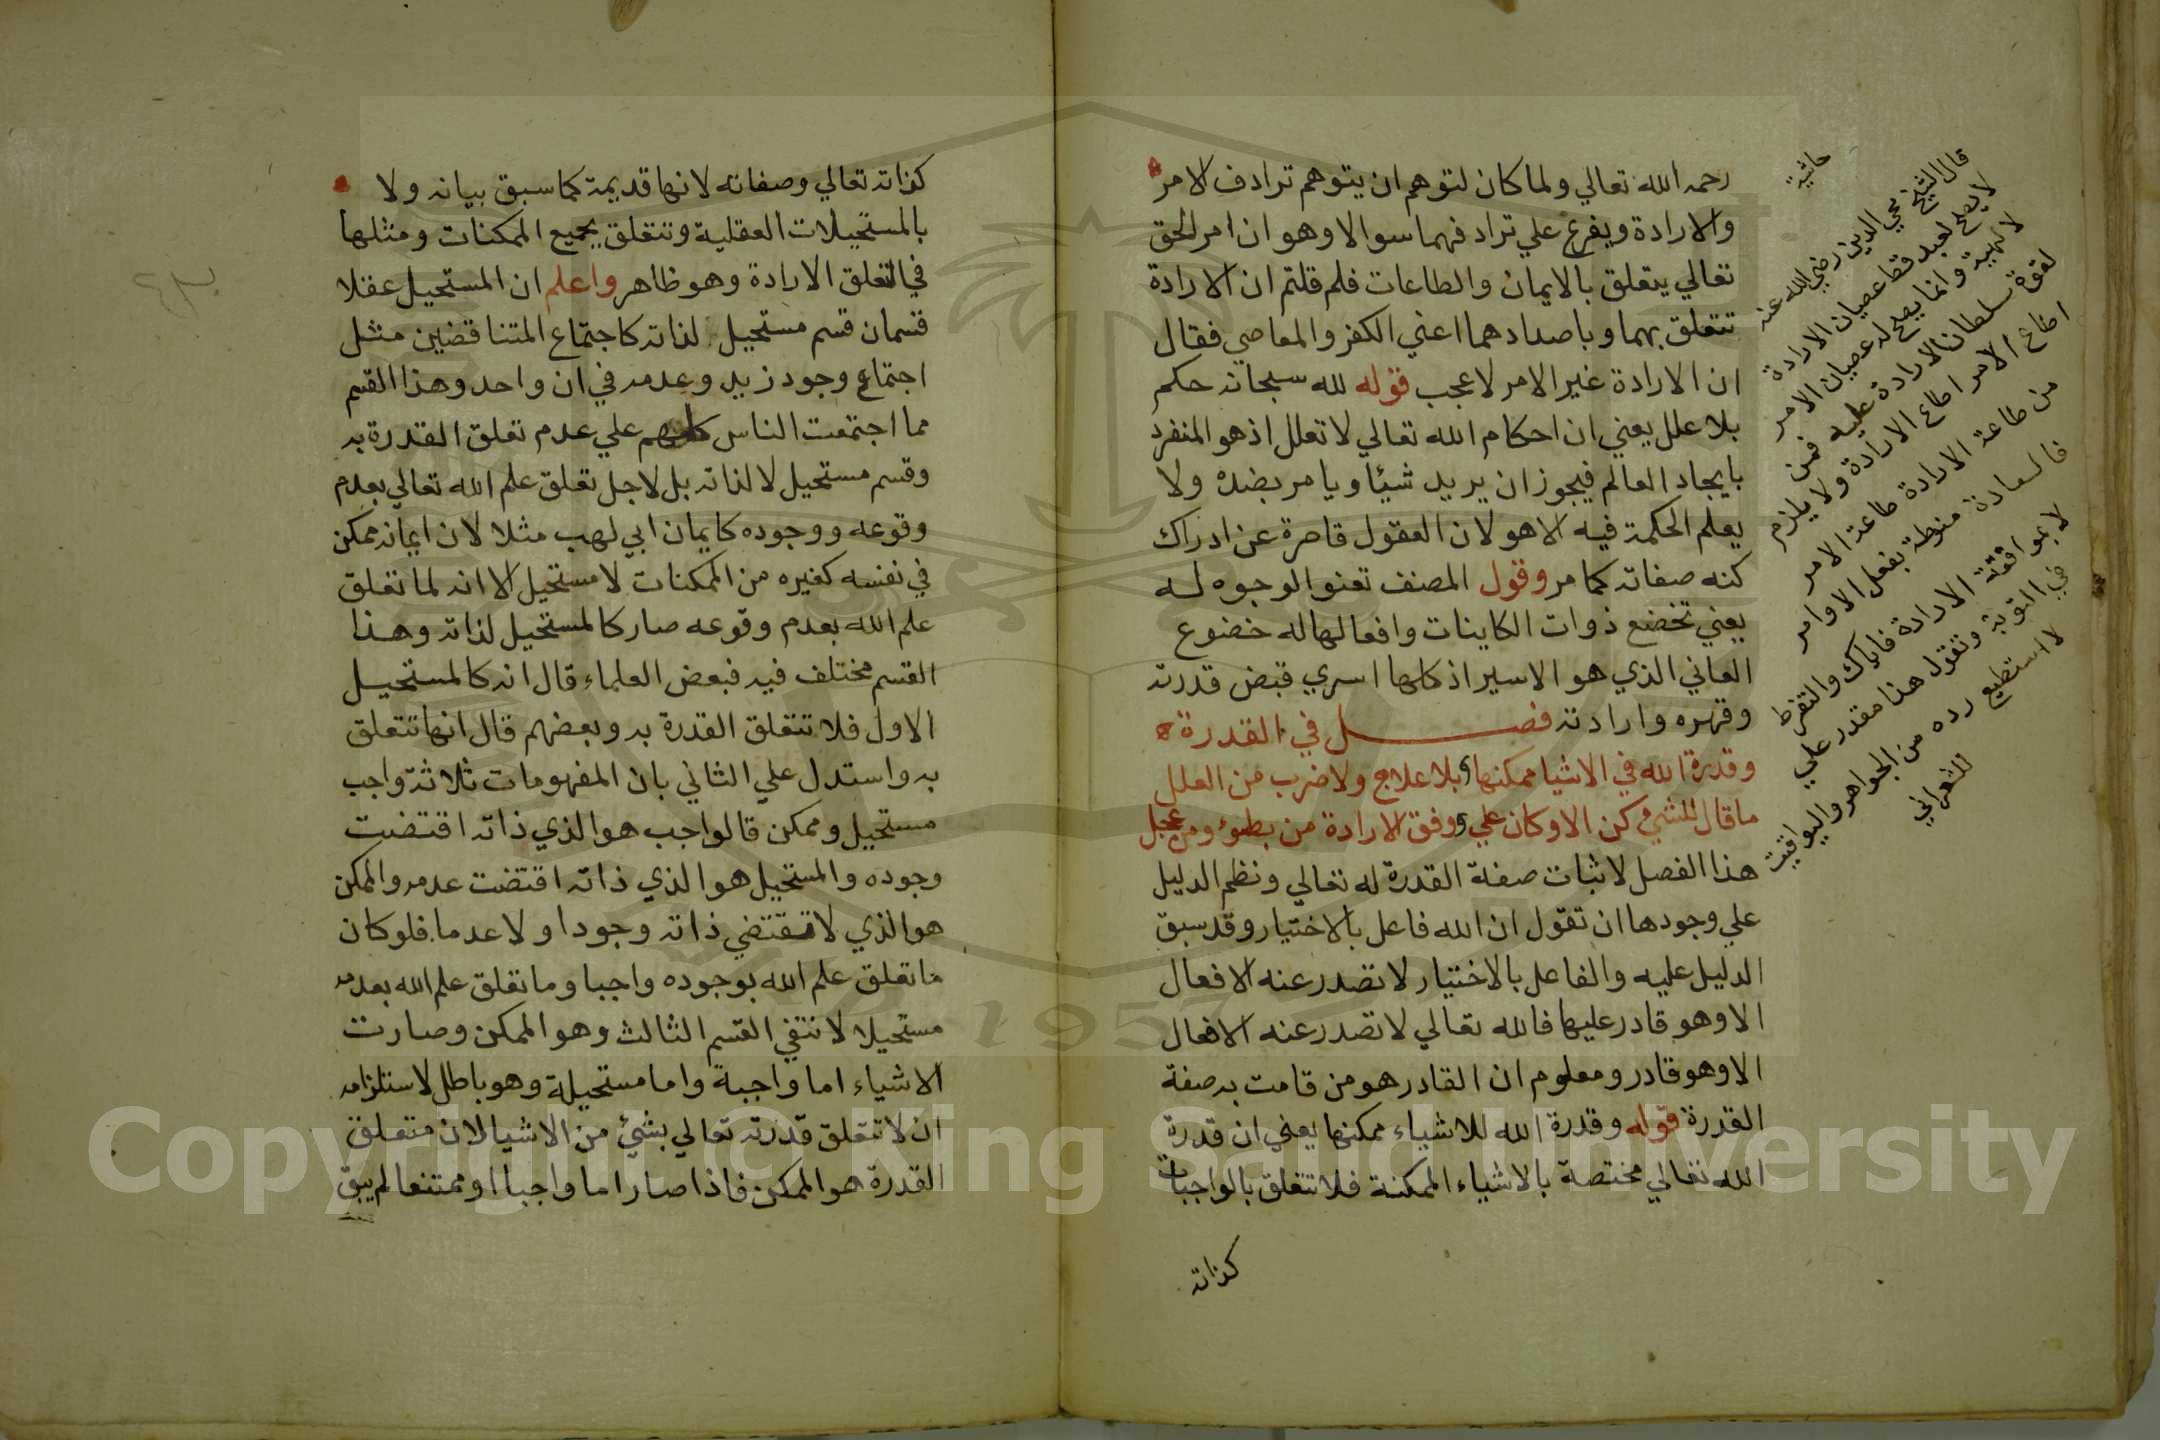 رحمه الله تعالي ولما كان لتوهم ان يتوهم ترادف الامر
والارادة ويفرع علي ترادفهما سوالا وهو ان امر الحق
تعالي يتعلق بالايمان والطاعات فلم قلتم ان الارادة
تتعلق بهما وباضدادهما اعني الكفر والمعاصي فقال
ان الارادة غير الامر لا عجب قوله لله سبحانه حكم
بلا علل يعني ان احكام الله تعالي لا تعلل اذ هو المنفرد
بايجاد العالم فيجوز ان يريد شيئا ويامر بضده ولا
يعلم الحكمة فيه الا هو لان العقول قاصرة عن ادراك
كنه صفاته كما مر وقول المصنف تعنو الوجوه له
يعني تخضع ذوات الكاينات وافعالها له خضوع
العاني الذي هو الاسير اذ كلها اسري قبض قدرته
وقهره وارادته فصل في القدرة
وقدرة الله في الاشيا ممكنها بلا علاج ولا ضرب من العلل
ما قال للشئ كن الا وكان علي وفق الارادة من بطوء ومن عجل
هذا الفصل لاثبات صفة القدرة له تعالي ونظم الدليل
علي وجودها ان تقول ان الله فاعل بالاختيار وقد سبق
الدليل عليه والفاعل بالاختيار لا تصدر عنه الافعال
الا وهو قادر عليها فالله تعالي لا تصدر عنه الافعال
الا وهو قادر ومعلوم ان القادر هو من قامت به صفة
القدرة قوله وقدرة الله للاشياء ممكنها يعني ان قدرة
الله تعالي مختصة بالاشياء الممكنة فلا تتعلق بالواجبات
كذاته
حاشية
قال الشيخ محي الدين رضي الله عنه
لا يصح لعبد قط عصيان الارادة
الالهية وانما يصح له عصيان الامر
لقوة سلطان الارادة عليه فمن
اطاع الامر اطاع الارادة ولا يلزم
من طاعة الارادة طاعة الامر
فالسعادة منوطة بفعل الاوامر
لا بموافقة الارادة فاياك والتفريط
في التوبة وتقول هذا مقدر علي
لا استطيع رده من الجواهر واليواقيت
للشعراني
كذاته تعالي وصفاته لانها قديمة كما سبق بيانه ولا
بالمستحيلات العقلية وتتعلق بجميع الممكنات ومثلها
في التعلق الارادة وهو ظاهر واعلم ان المستحيل عقلا
قسمان قسم مستحيل لذاته كاجتماع المتناقضين مثل
اجتماع وجود زيد وعدمه في ان واحد وهذا القسم
مما اجتمعت الناس كلهم علي عدم تعلق القدرة به
وقسم مستحيل لا لذاته بل لاجل تعلق علم الله تعالي بعدم
وقوعه ووجوده كايمان ابي لهب مثلا لان ايمانه ممكن
في نفسه كغيره من الممكنات لا مستحيل الا انه لما تعلق
علم الله بعدم وقوعه صار كالمستحيل لذاته وهذا
القسم مختلف فيه فبعض العلماء قال انه كالمستحيل
الاول فلا تتعلق القدرة به وبعضهم قال انها تتعلق
به واستدل علي الثاني بان المفهومات ثلاثة واجب
مستحيل وممكن فالواجب هو الذي ذاته اقتضت
وجوده والمستحيل هو الذي ذاته اقتضت عدمه والممكن
هو الذي لا تقتضي ذاته وجودا ولا عدما فلو كان
ما تعلق علم الله بوجوده واجبا وما تعلق علم الله بعدمه
مستحيلا لانتفي القسم الثالث وهو الممكن وصارت
الاشياء اما واجبة واما مستحيلة وهو باطل لاستلزامه
ان لا تتعلق قدرته تعالي بشئ من الاشيا لان متعلق
القدرة هو الممكن فاذا صار اما واجبا او ممتنعا لم يبق
Copyright © King Saud University
1957